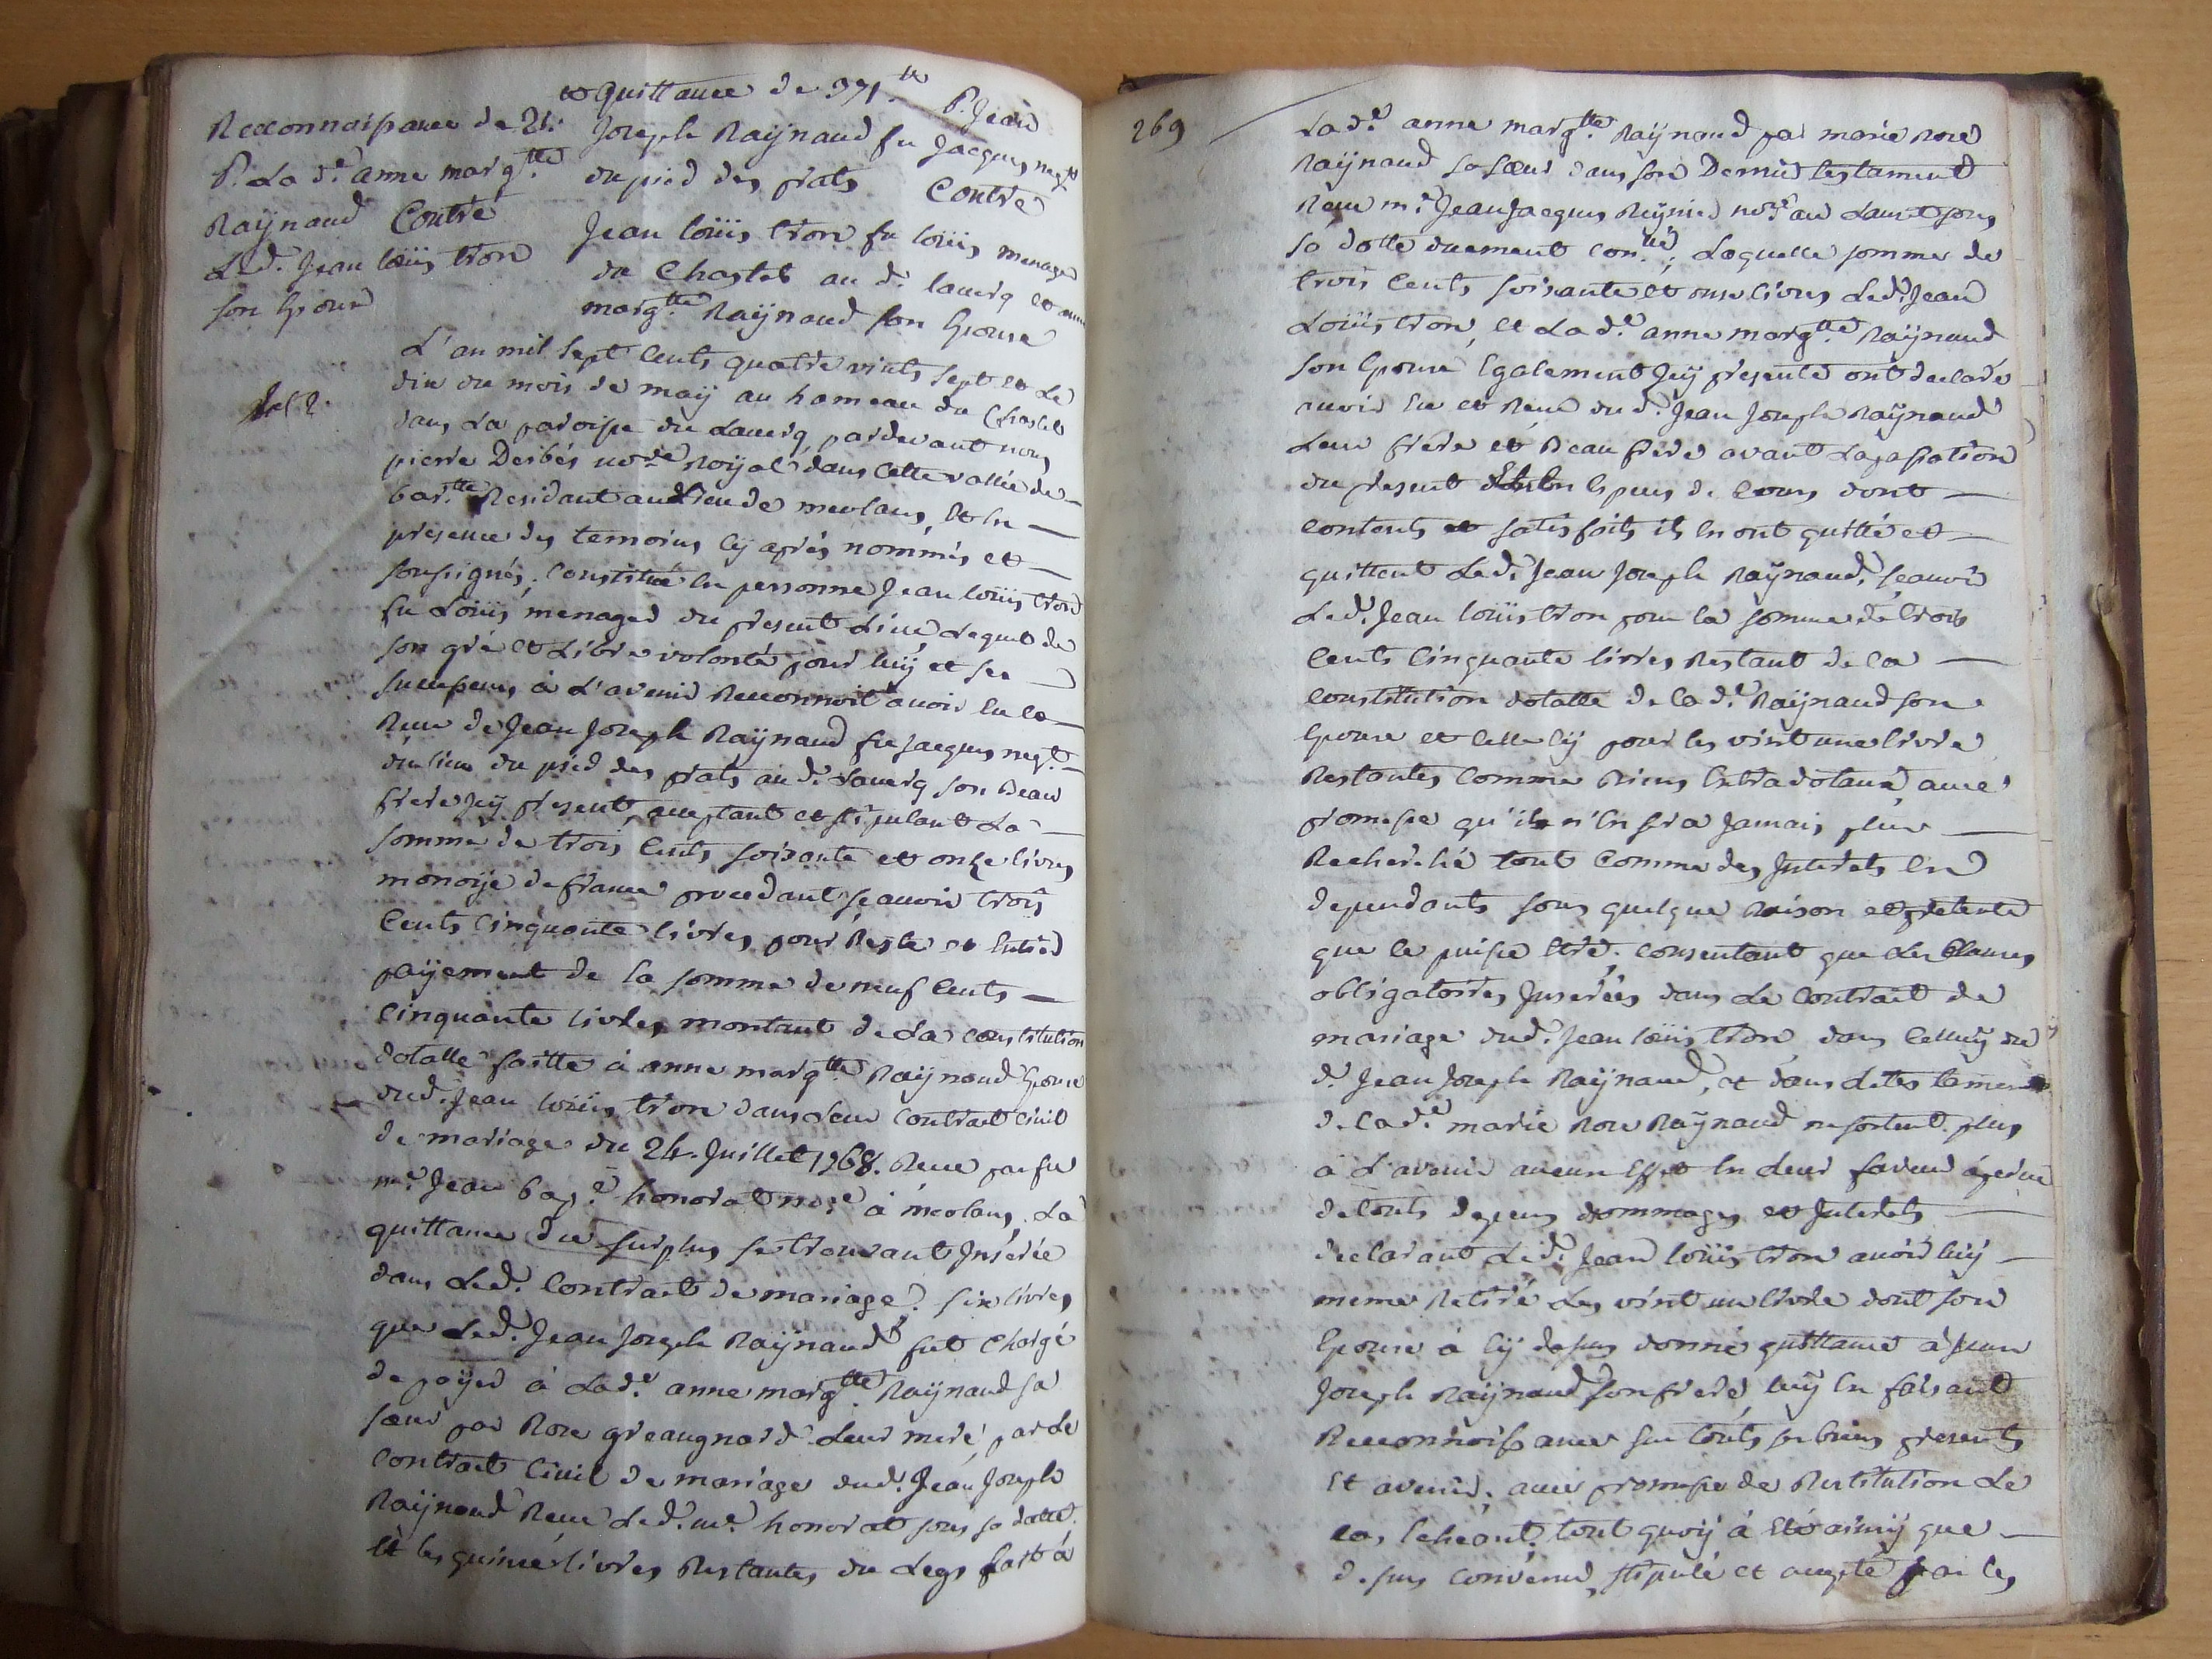 & quittance de 371.tt P. Jean
Joseph Raÿnaud fu Jacques negt
du pied des prats Contre
Jean loüis tron fu loüis menager
du Chastel au d. lauerq et anne
margtte. Raÿnaud son Epouse
Reconnoissance de 21.
P. La de. anne margtte.
Raÿnaud Contre
Led. Jean loüis tron
son Epoux
L'an mil sept cents quatre vints sept et Le
dix du mois de maÿ au hameau du Chastel
dans La paroisse du Lauerq, pardevant nous
pierre Derbés nore. Roÿal dans cette vallée de
bartte. Residant au lieu de meolans, et en
presence des temoins cÿ aprés nommés et
soussignés. Constitué en personne Jean loüis tron
fu Loüis, menager du present Lieu, Lequel de
son gré et Libre volonté pour luÿ et ses
successeurs à L'avenir Reconnoit avoir eu et
Receu de Jean Joseph Raÿnaud fu Jacques negt.
du lieu du pied des prats au d. Lauerq son Beau
frere icÿ present, acceptant et stipulant La
somme de trois cents soixante et onze livres
monoÿe de france procedant sçauoir trois
Cents Cinquante livres pour Reste et Entier
paÿement de la somme de neuf Cents
Cinquante livres, montant de La constitution
dotalle faitte à anne margtte. Raÿnaud Epouse
dud. Jean loüis tron dans Leur Contrat Civil
de mariage du 24. Juillet 1768. Receu par fu
me. Jean bape. honorat nore. à meolans, La
quittance du surplus se trouvant Inserée
dans Led. Contract de mariage. six livres
que Led. Jean Joseph Raÿnaud fut Chargé
de paÿer à Lade. anne margtte. Raÿnaud sa
sœur par Rose greaugnard Leur mere, par Le
Contract Civil de mariage dud. Jean Joseph
Raÿnaud Receu Led. me. honorat sous sa datte.
Et les quinze livres Restantes du Legs fait à
269
Lade. anne margtte. Raÿnaud par marie Rose
Raÿnaud sa sœur dans son Dernier testament
Receu me. Jean Jacques Reynier nore. au Lauzet sous
sa datte duement contlé.; Laquelle somme de
trois Cents soixante et onze livres Led. Jean
Loüis tron, et Lade. anne margtte. Raÿnaud
son Epouse Egalement Icÿ presente ont declaré
avoir Eu et Receu dud. Jean Joseph Raÿnaud
Leur frere et Beau frere avant La passation
du present En Especes de Cours dont
contents et satisfaits ils en ont quitté et
quittent Led. Jean Joseph Raÿnaud, sçauoir
Led. Jean loüis tron pour la somme de trois
Cents Cinquante livres Restant de la
Constitution dotalle de lade. Raÿnaud son
Epouse et celle cÿ pour les vint une livre
Restantes Comme Biens Extradotaux, avec
promesse qu'il n'en sera Jamais plus
Recherché tout Comme des Interets En
dependants sous quelque Raison et pretexte
que ce puisse Etre. Consentant que les Clauses
obligatoires Inserées dans Le Contract de
mariage dud. Jean loüis tron, dans Celluÿ du
d. Jean Joseph Raÿnaud, et dans Le testament
de lade. marie Rose Raÿnaud ne portent plus
à L'avenir aucun Effet En Leur faveur à peine
de touts depens dommages et Interets
declarant Led. Jean loüis tron avoir luÿ
meme Retiré Les vint une livre dont son
Epouse à cÿ dessus donné quittance à Jean
Joseph Raÿnaud son frere, luÿ En faisant
Reconnoissance sur touts ses biens presents
Et avenir, avec promesse de Restitution Le
cas Echeant. tout quoÿ à Eté ainsÿ que
dessus convenu, stipulé et accepté par les